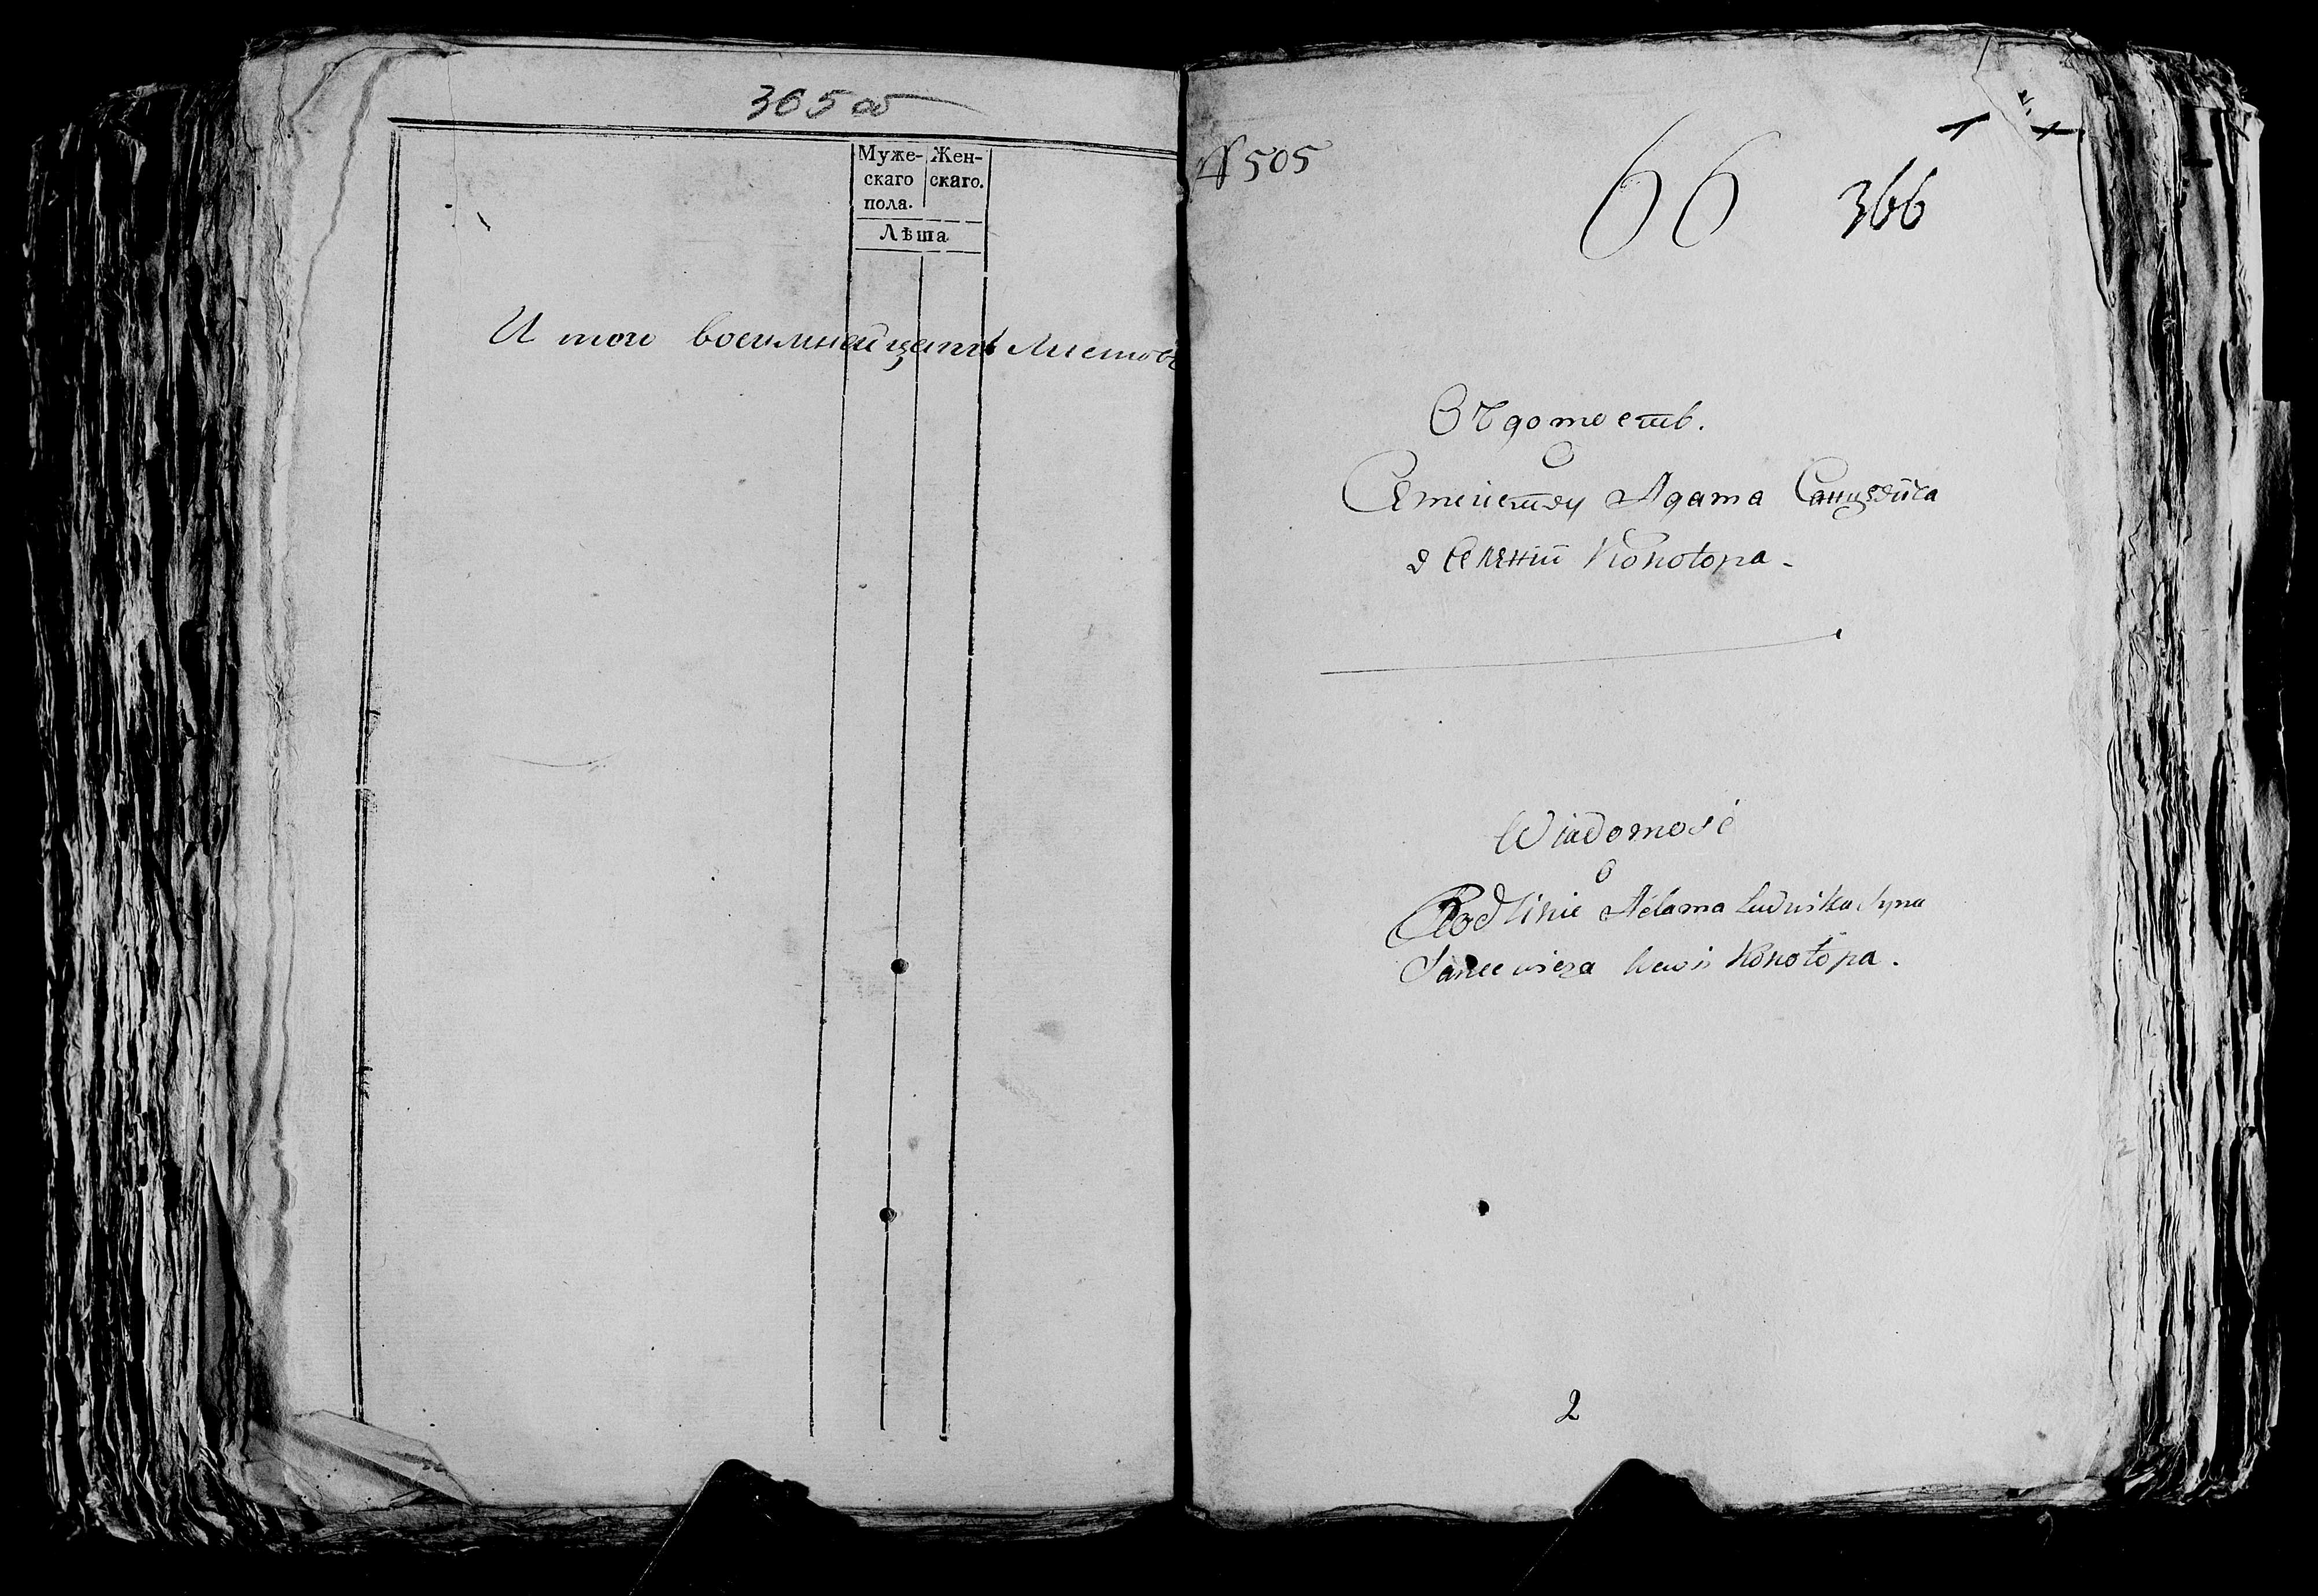 365 об
Муже- Жен-
скаго скаго.
пола.
Лѣта
И того восимнайцать листовъ
№ 505
66 366
Вѣдомость.
О
Семейству Адама Санцевича
в Селении Конотопа -
Wiadomość
o
Rodzinie Adama Ludwika syna
Sancewicza we wsi Konotopa.
2